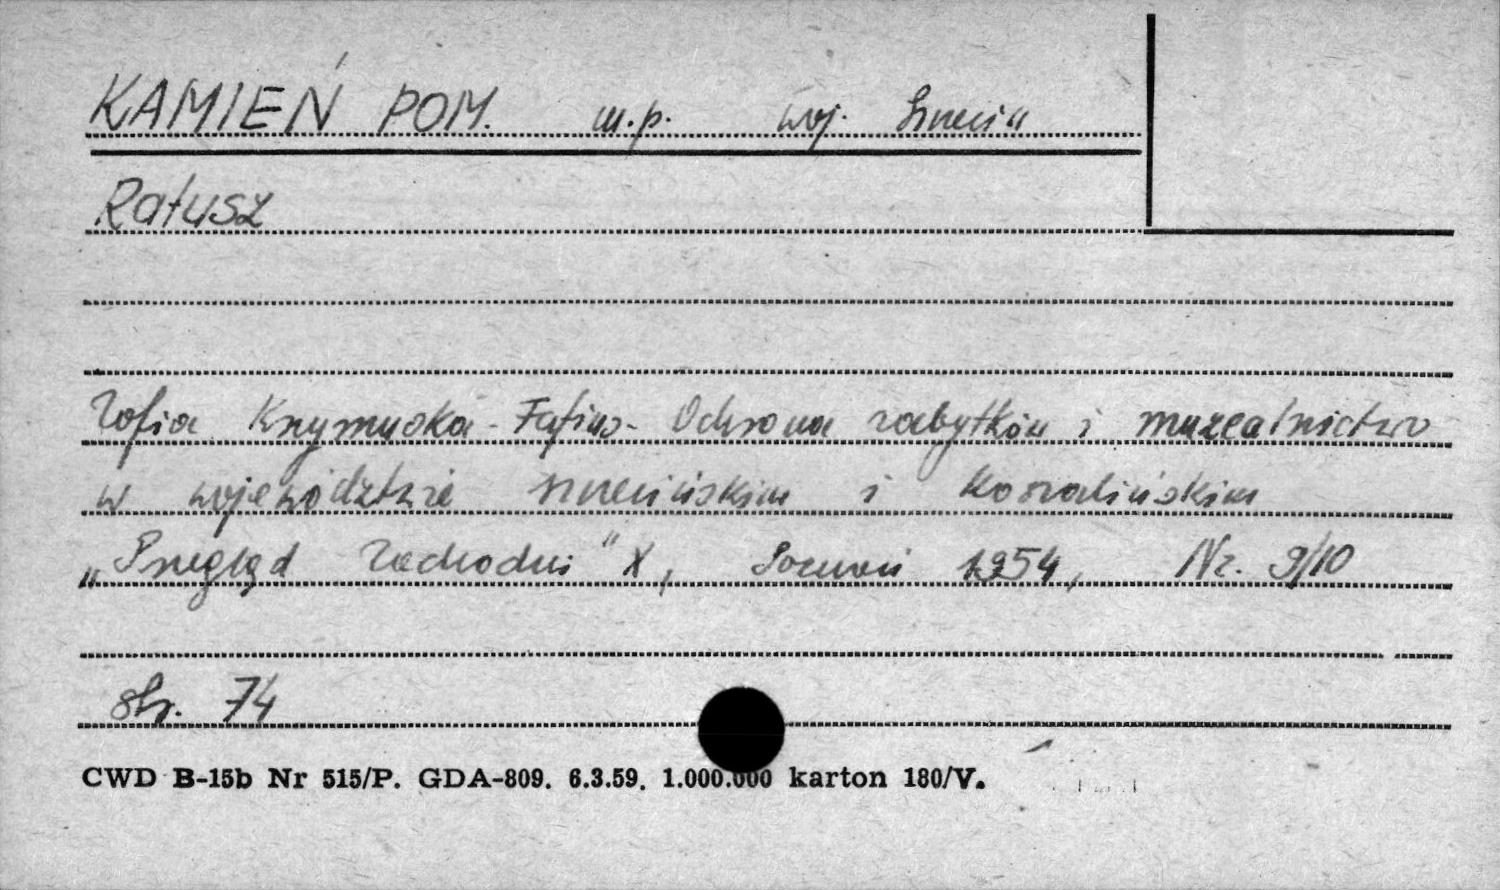 KAMIEŃ POM. m.p. woj. Szczecin
Ratusz
Zofia Krzymuska-Fafius- Ochrona zabytków i muzealnictwo
w województwie szczecińskim i koszalińskim
„Przegląd Zachodni" X, Poznań 1954, Nr. 9/10
str. 74
CWD B-15b Nr 515/P. GDA-809. 6.3.59. 1.000.000 karton 180/V.